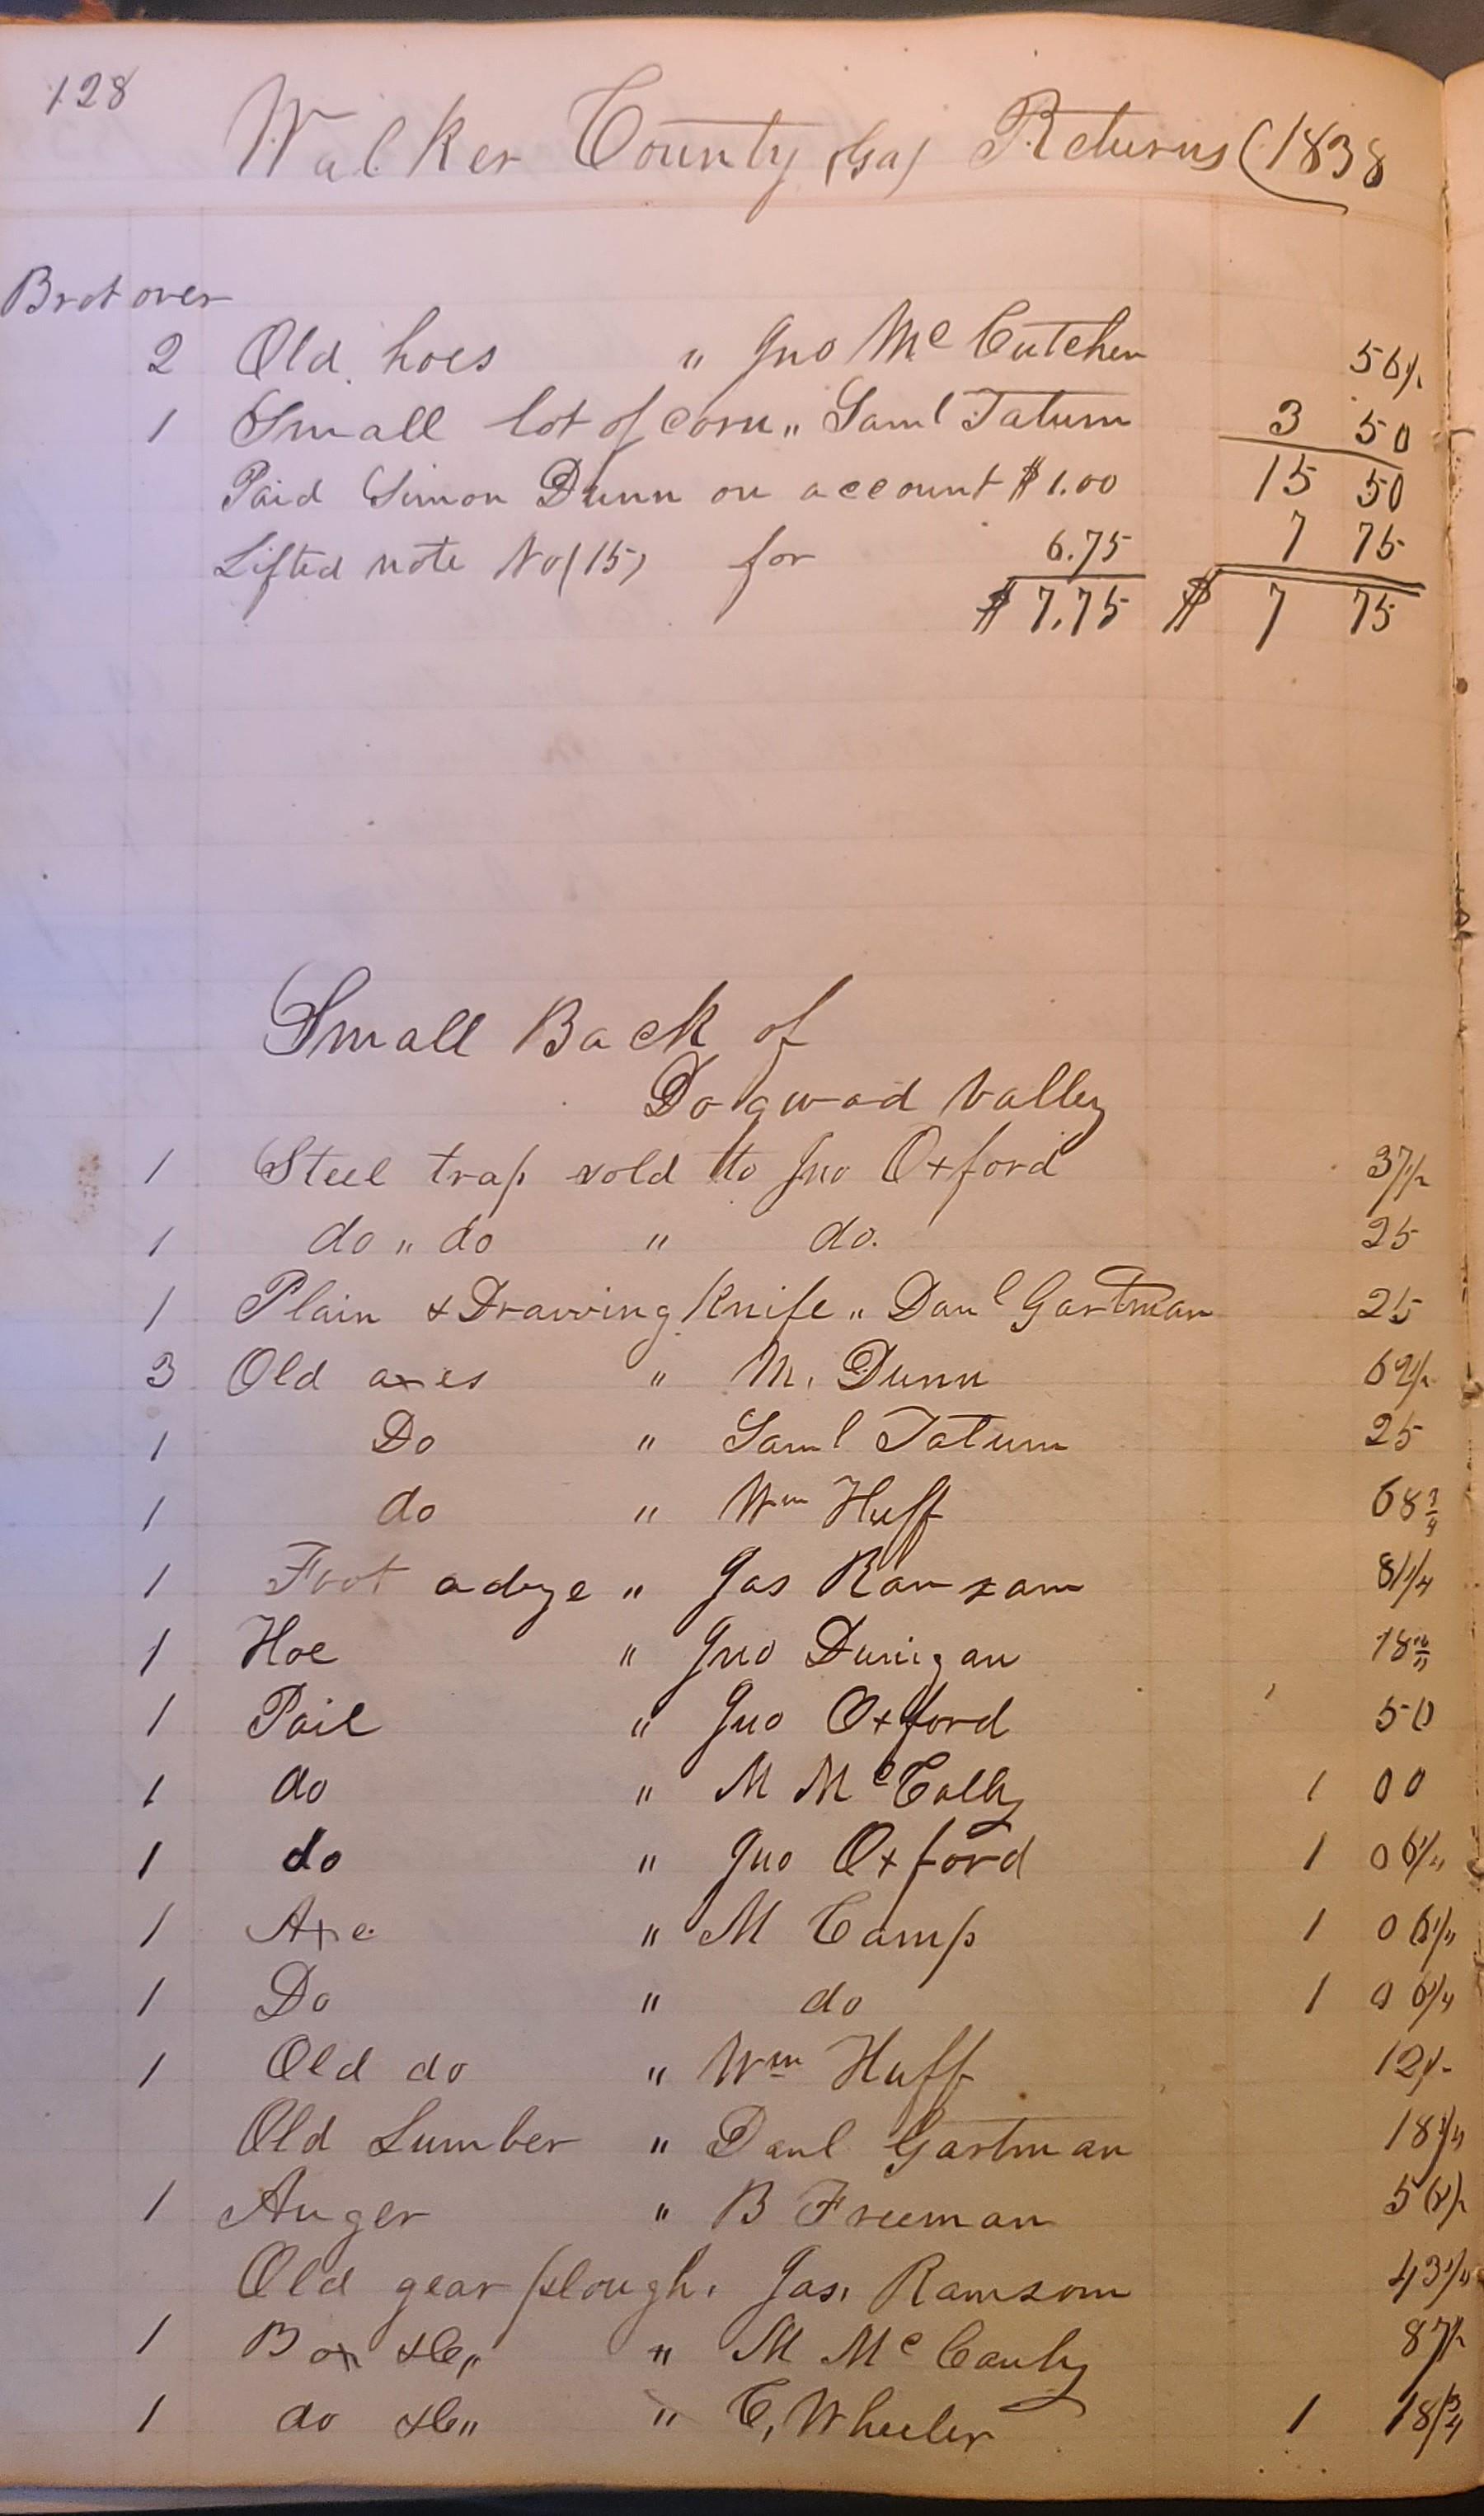 128
Walker County (Ga) Returns (1838
Brot over
2 Old hoes " Jno McCutchen 56½
1 Small lot of corn " Saml Tatum 3 50
Paid Simon Dunn on account $1.00 15 50
Lifted note No (15) for 6.75 7 75
$ 7.75 $ 7 75
Small Back of
Dogwood Valley
1 Steel trap sold to Jno Oxford 37½
1 do " do " do. 25
1 Plain & Drawing Knife " Danl Gartman 25
3 Old axes " M. Dunn 62½
1 Do " Saml Tatum 25
1 do " Wm Huff 68¾
1 Foot adze " Jas Ransam 81¼
1 Hoe " Jno Dunigan 18
1 Pail " Jno Oxford 50
1 do " M McCally 1 00
1 do " Jno Oxford 1 06¼
1 Axe " M Camp 1 06¼
1 Do " do 1 06¼
1 Old do " Wm Huff 12½
Old Lumber " Danl Gartman 18¾
1 Auger " B Freeman
Old gear plough. Jas. Ramsom 43¼
1 Box &c " M McCauly 87½
1 do &c " C. Wheeler 1 18¾